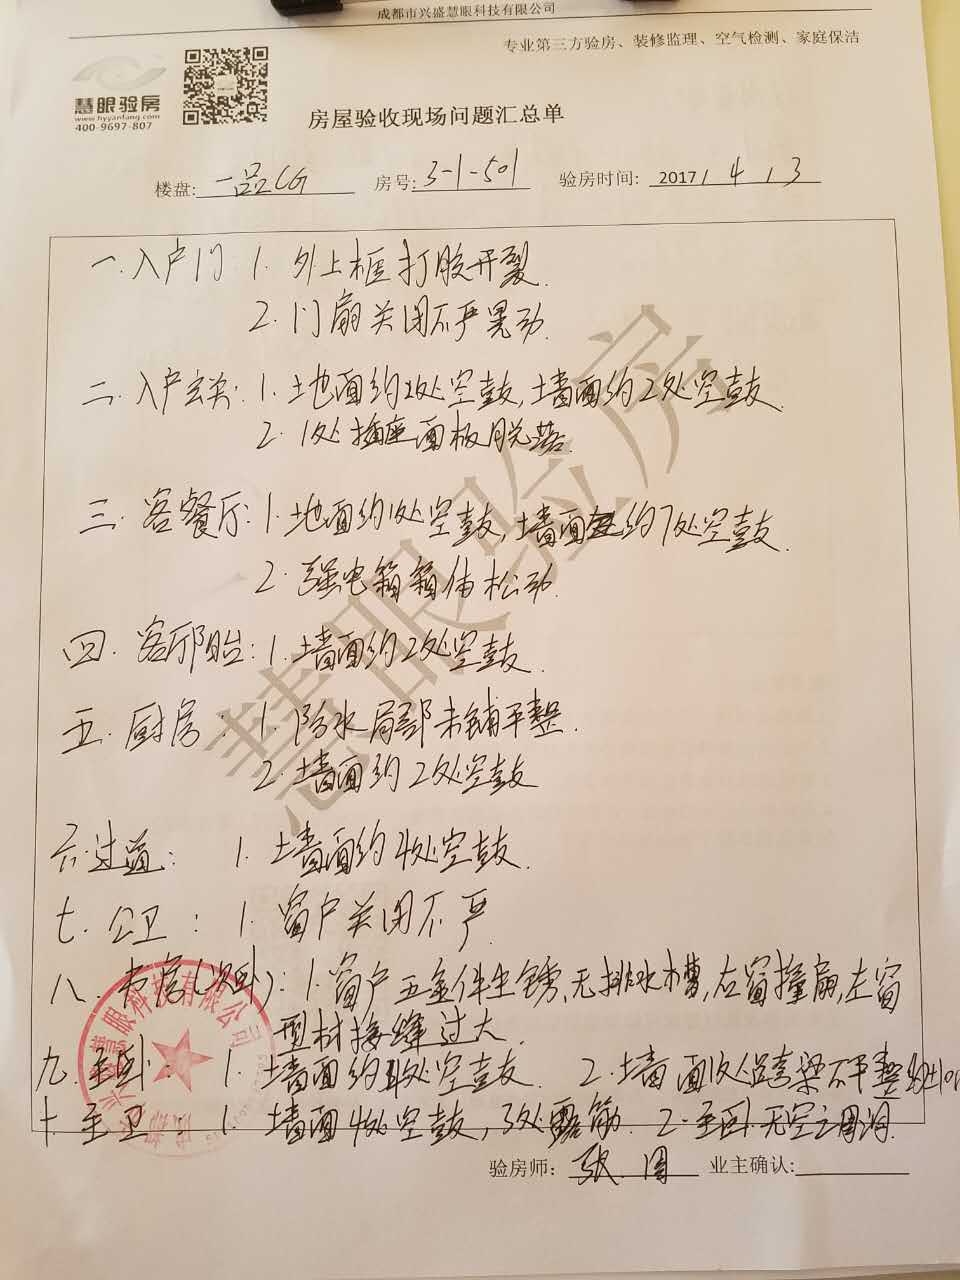 成都市兴盛慧眼科技有限公司
专业第三方验房、装修监理、空气检测、家庭保洁
慧眼验房
www.hyyanfang.com
400-9697-807
房屋验收现场问题汇总单
楼盘: 一品CG 房号: 3-1-501 验房时间: 2017 / 4 / 3
一.入户门 1. 外上框打胶开裂.
2. 门扇关闭不严晃动.
二.入户玄关: 1. 土地面约2处空鼓,墙面约2处空鼓.
2. 1处插座面板脱落.
三.客餐厅: 1.地面约1处空鼓,墙面约7处空鼓.
2. 强电箱箱体松动.
四.客厅阳台: 1.墙面约2处空鼓.
五.厨房: 1.防水局部未铺平整.
2. 墙面约2处空鼓
六.过道: 1. 墙面约4处空鼓.
七.公卫: 1. 窗户关闭不严
八.书房(次卧): 1.窗户五金件生锈,无排水槽,右窗撞扇,左窗
型材接缝过大.
九.主卧 1. 墙面约 处空鼓. 2.墙面1处跨梁不平整
十.主卫 1. 墙面4处空鼓,3处露筋. 2.主卧无空调洞.
验房师: 张 业主确认:
慧眼验房